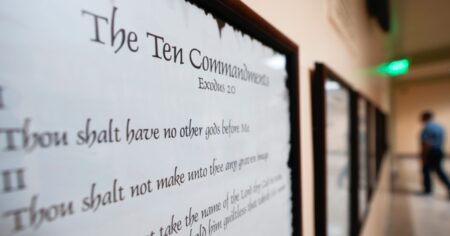 The Ten Commandments
Exodus 20
I
Thou shalt have no other gods before Me
II
Thou shalt not make unto thee any graven image
take the name of the Lord thy God
hold him guiltless that